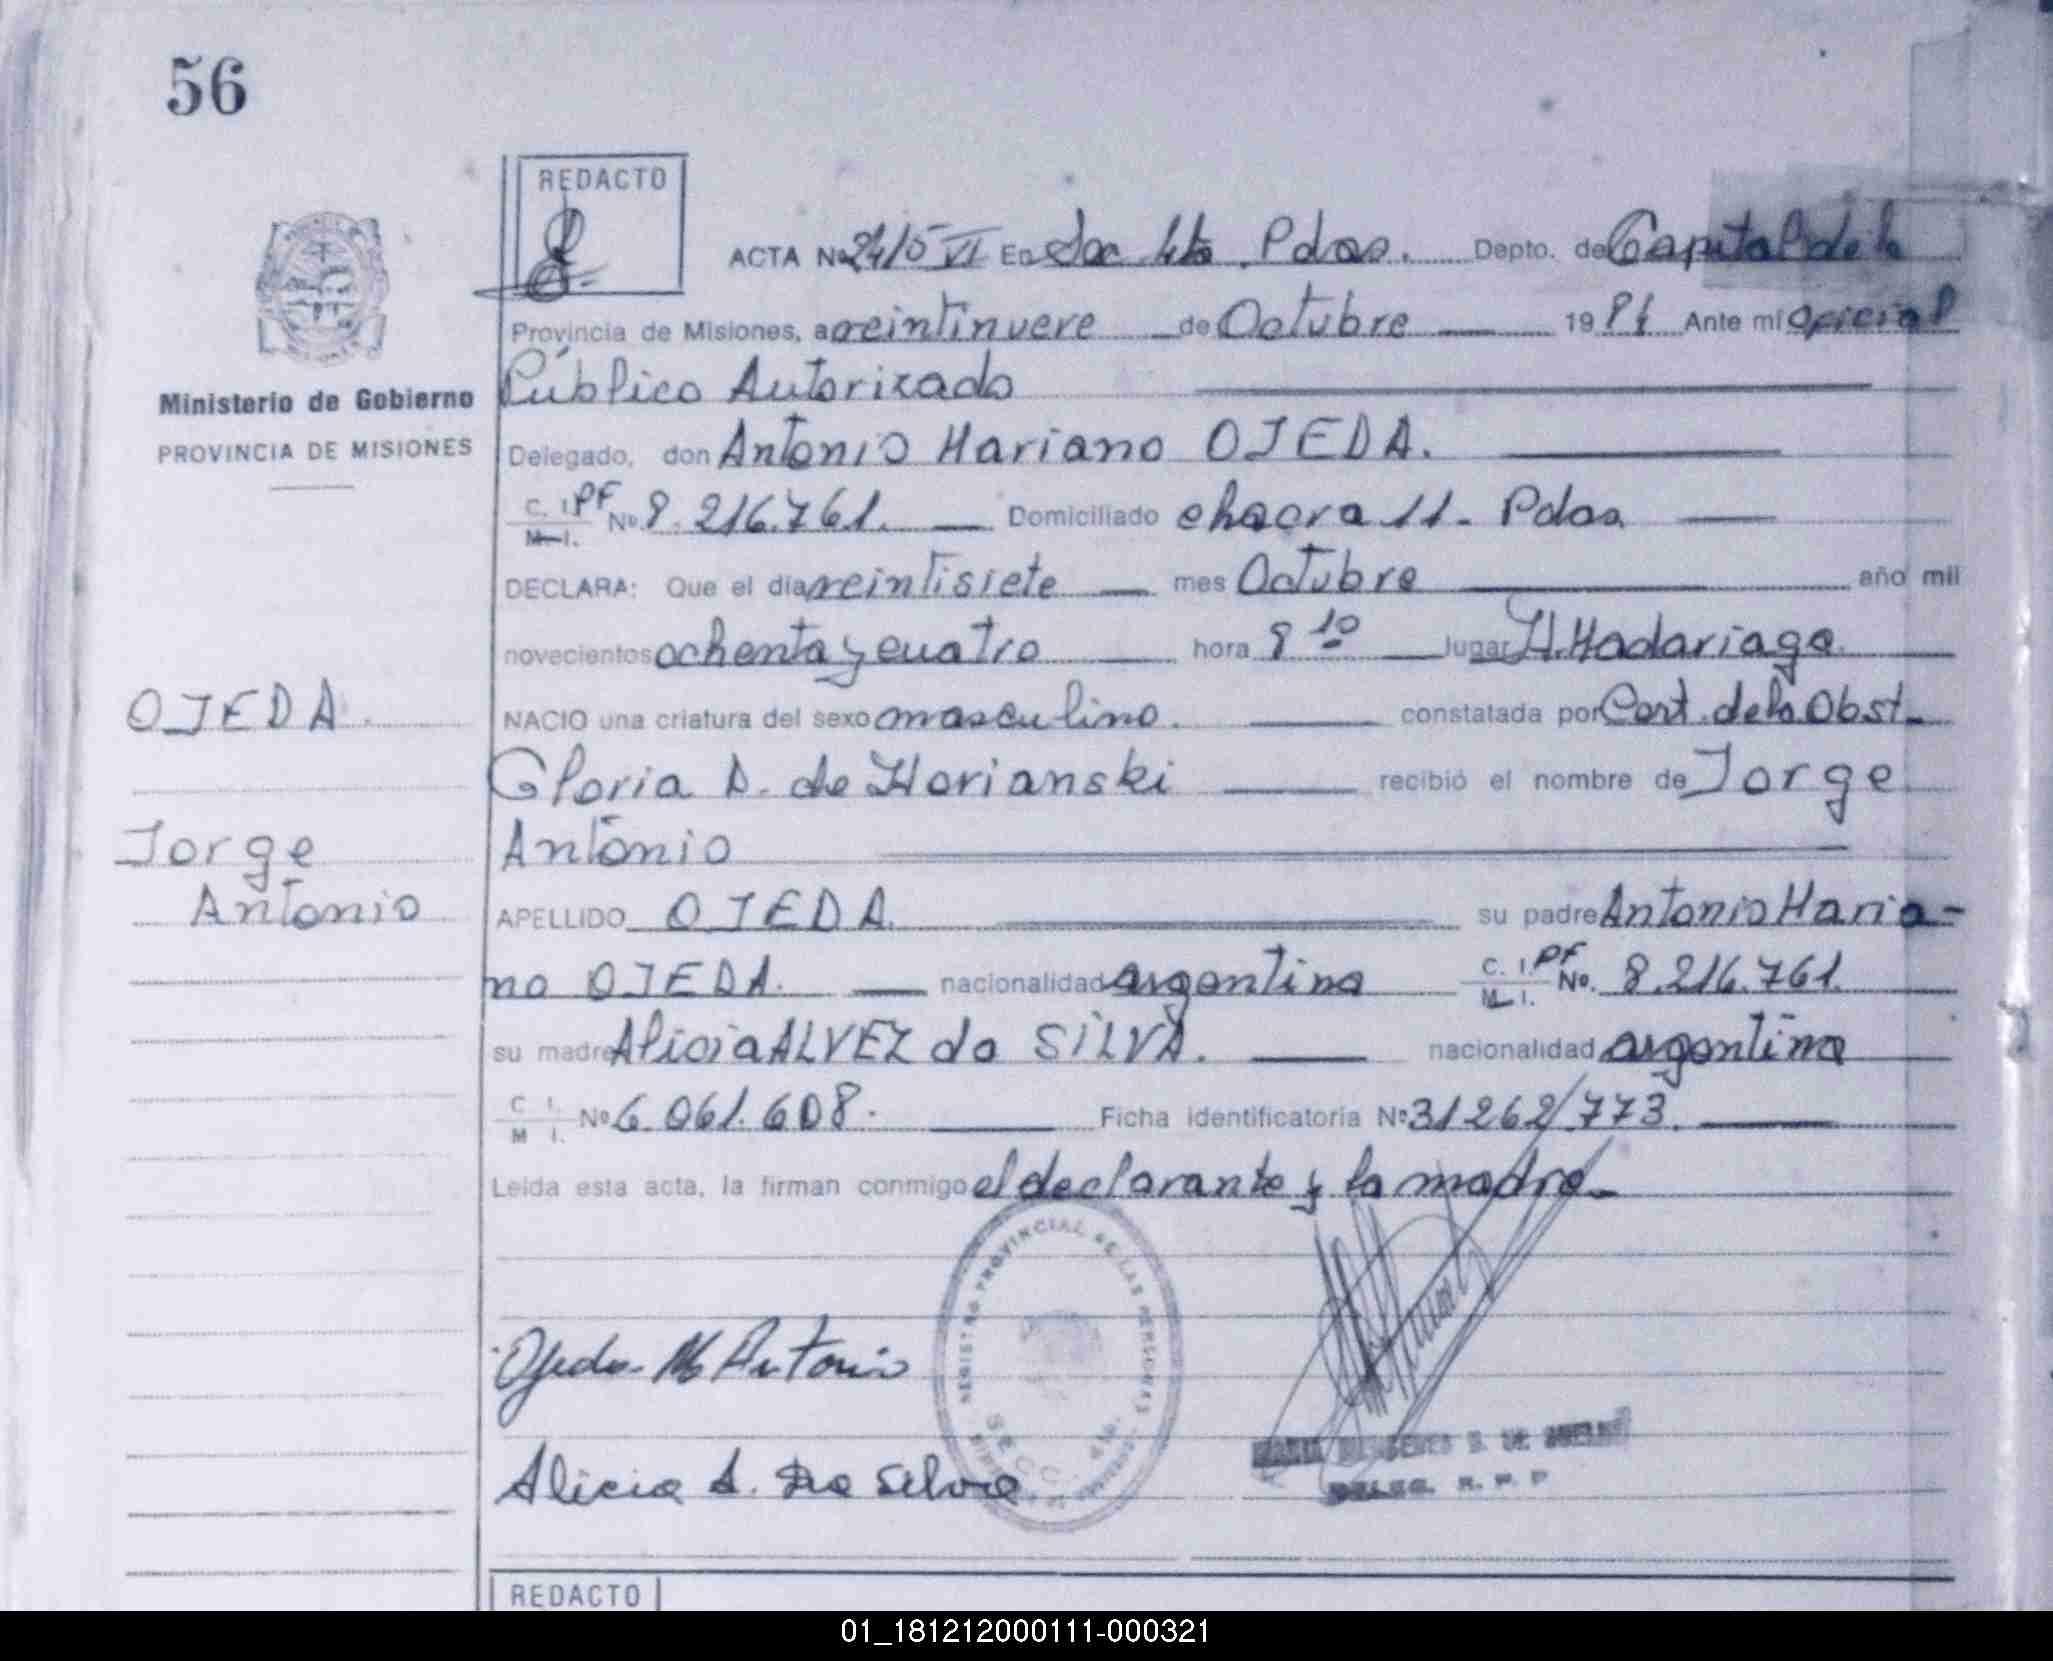 56
REDACTO
ACTA Nº 2415 VI En Sec 4ta Pdas. Depto. de Capital de la
Provincia de Misiones, a veintinueve de Octubre 1984 Ante mí Oficial
Público Autorizado
Ministerio de Gobierno
PROVINCIA DE MISIONES
Delegado, don Antonio Mariano OJEDA.
C. I. PF Nº 8.216.761. Domiciliado chacra 11- Pdas
M. I.
DECLARA: Que el día veintisiete mes Octubre año mil
novecientos ochenta y cuatro hora 8 10 lugar H. Madariaga
OJEDA.
NACIO una criatura del sexo masculino. constatada por Cert. de la Obst.
Gloria D. de Horianski recibió el nombre de Jorge
Jorge
Antonio
Antonio
APELLIDO OJEDA. su padre Antonio Maria-
no OJEDA. nacionalidad argentina C. I. PF Nº. 8.216.761.
M. I.
su madre Alicia ALVEZ da SILVA. nacionalidad argentina
C I. Nº 6.061.608. Ficha identificatoria Nº 31262/773.
M I.
Leída esta acta, la firman conmigo el declarante y la madre.
REGISTRO PROVINCIAL DE LAS PERSONAS
SECC. 4ta.
Ojeda M Antonio
Alicia A. Da Silva
DELEG. R. P. P
REDACTO
01_181212000111-000321